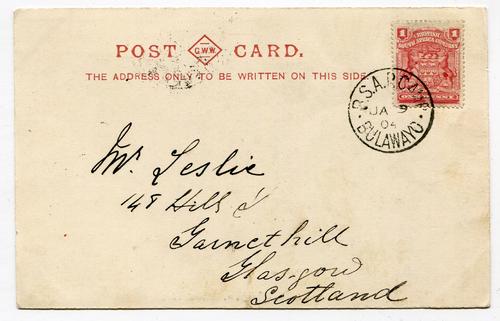 POST G.W.W. CARD.
THE ADDRESS ONLY TO BE WRITTEN ON THIS SIDE
1 BRITISH 1
SOUTH AFRICA COMPANY
ONE PENNY
B.S.A.P. CAMP
JA 9
04
BULAWAYO
Mr Leslie
148 Hill St
Garnethill
Glasgow
Scotland